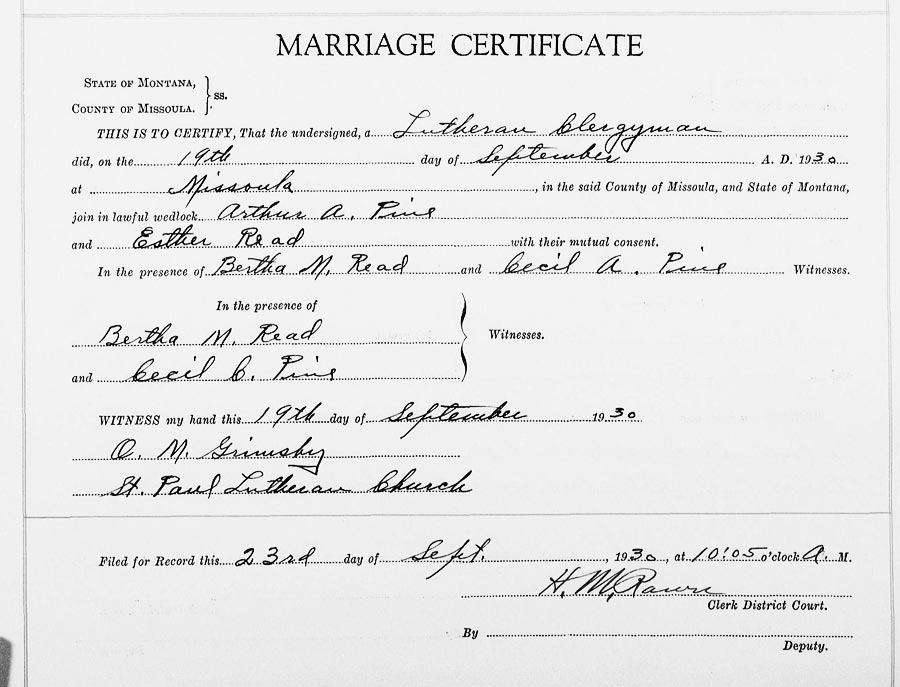 MARRIAGE CERTIFICATE
STATE OF MONTANA,
ss.
COUNTY OF MISSOULA.
THIS IS TO CERTIFY, That the undersigned, a Lutheran Clergyman
did, on the 19th day of September A. D. 1930
at Missoula, in the said County of Missoula, and State of Montana,
join in lawful wedlock Arthur A. Pine
and Esther Read with their mutual consent.
In the presence of Bertha M. Read and Cecil A. Pine Witnesses.
In the presence of
Bertha M. Read
Witnesses.
and Cecil C. Pine
WITNESS my hand this 19th day of September 1930
O. M. Grimsby
St. Paul Lutheran Church
Filed for Record this 23rd day of Sept., 1930, at 10:05 o'clock A. M.
H. M. Rawn
Clerk District Court.
By
Deputy.